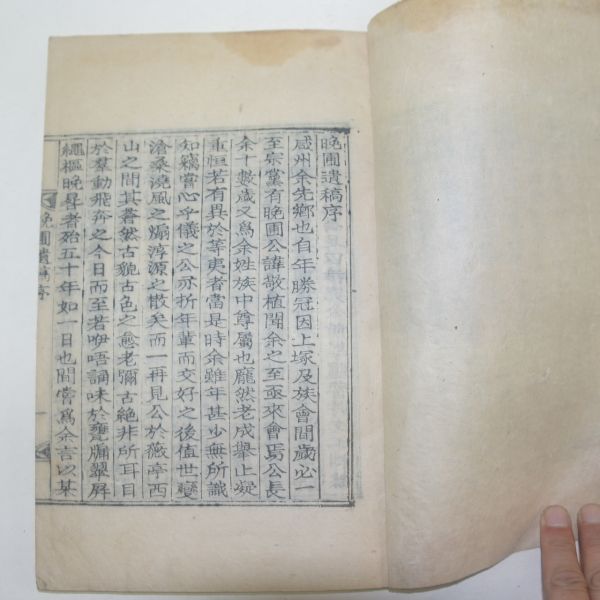 晩圃遺稿序
咸州余先鄕也自年勝冠因上塚及族會間歲必一
至宗黨有晩圃公諱敬植聞余之至亟來會焉公長
余十數歲又爲余姓族中尊屬也龐然老成擧止凝
重恒若有異於等夷者當是時余雖年甚少無所識
知竊嘗心乎儀之公亦折年輩而交好之後値世變
滄桑澆風之煽淳源之散矣而一再見公於薇亭西
山之間其蒼然古貌古色之愈老彌古絶非所耳目
於羣動飛奔之今日而至若咿唔誦味於甕牖翠屛
繩樞晩尋者殆五十年如一日也間嘗爲余言以某
晩圃遺稿序
一